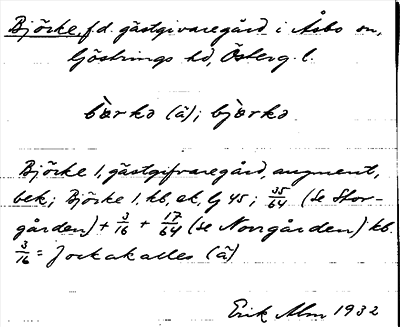 Björke, f.d. gästgivaregård i Åsbo sn,
Göstrings hd, Österg. l.
bærkə (ä); bjærkə
Björke 1, gästgifvaregård, augment,
bek; Björke 1, kb, ek, Lj 45; 35/64 (se Stor-
gården) + 3/16 + 17/64 (se Norrgården) kb.
3/16 = Jockakalles (ä)
Erik Alm 1932